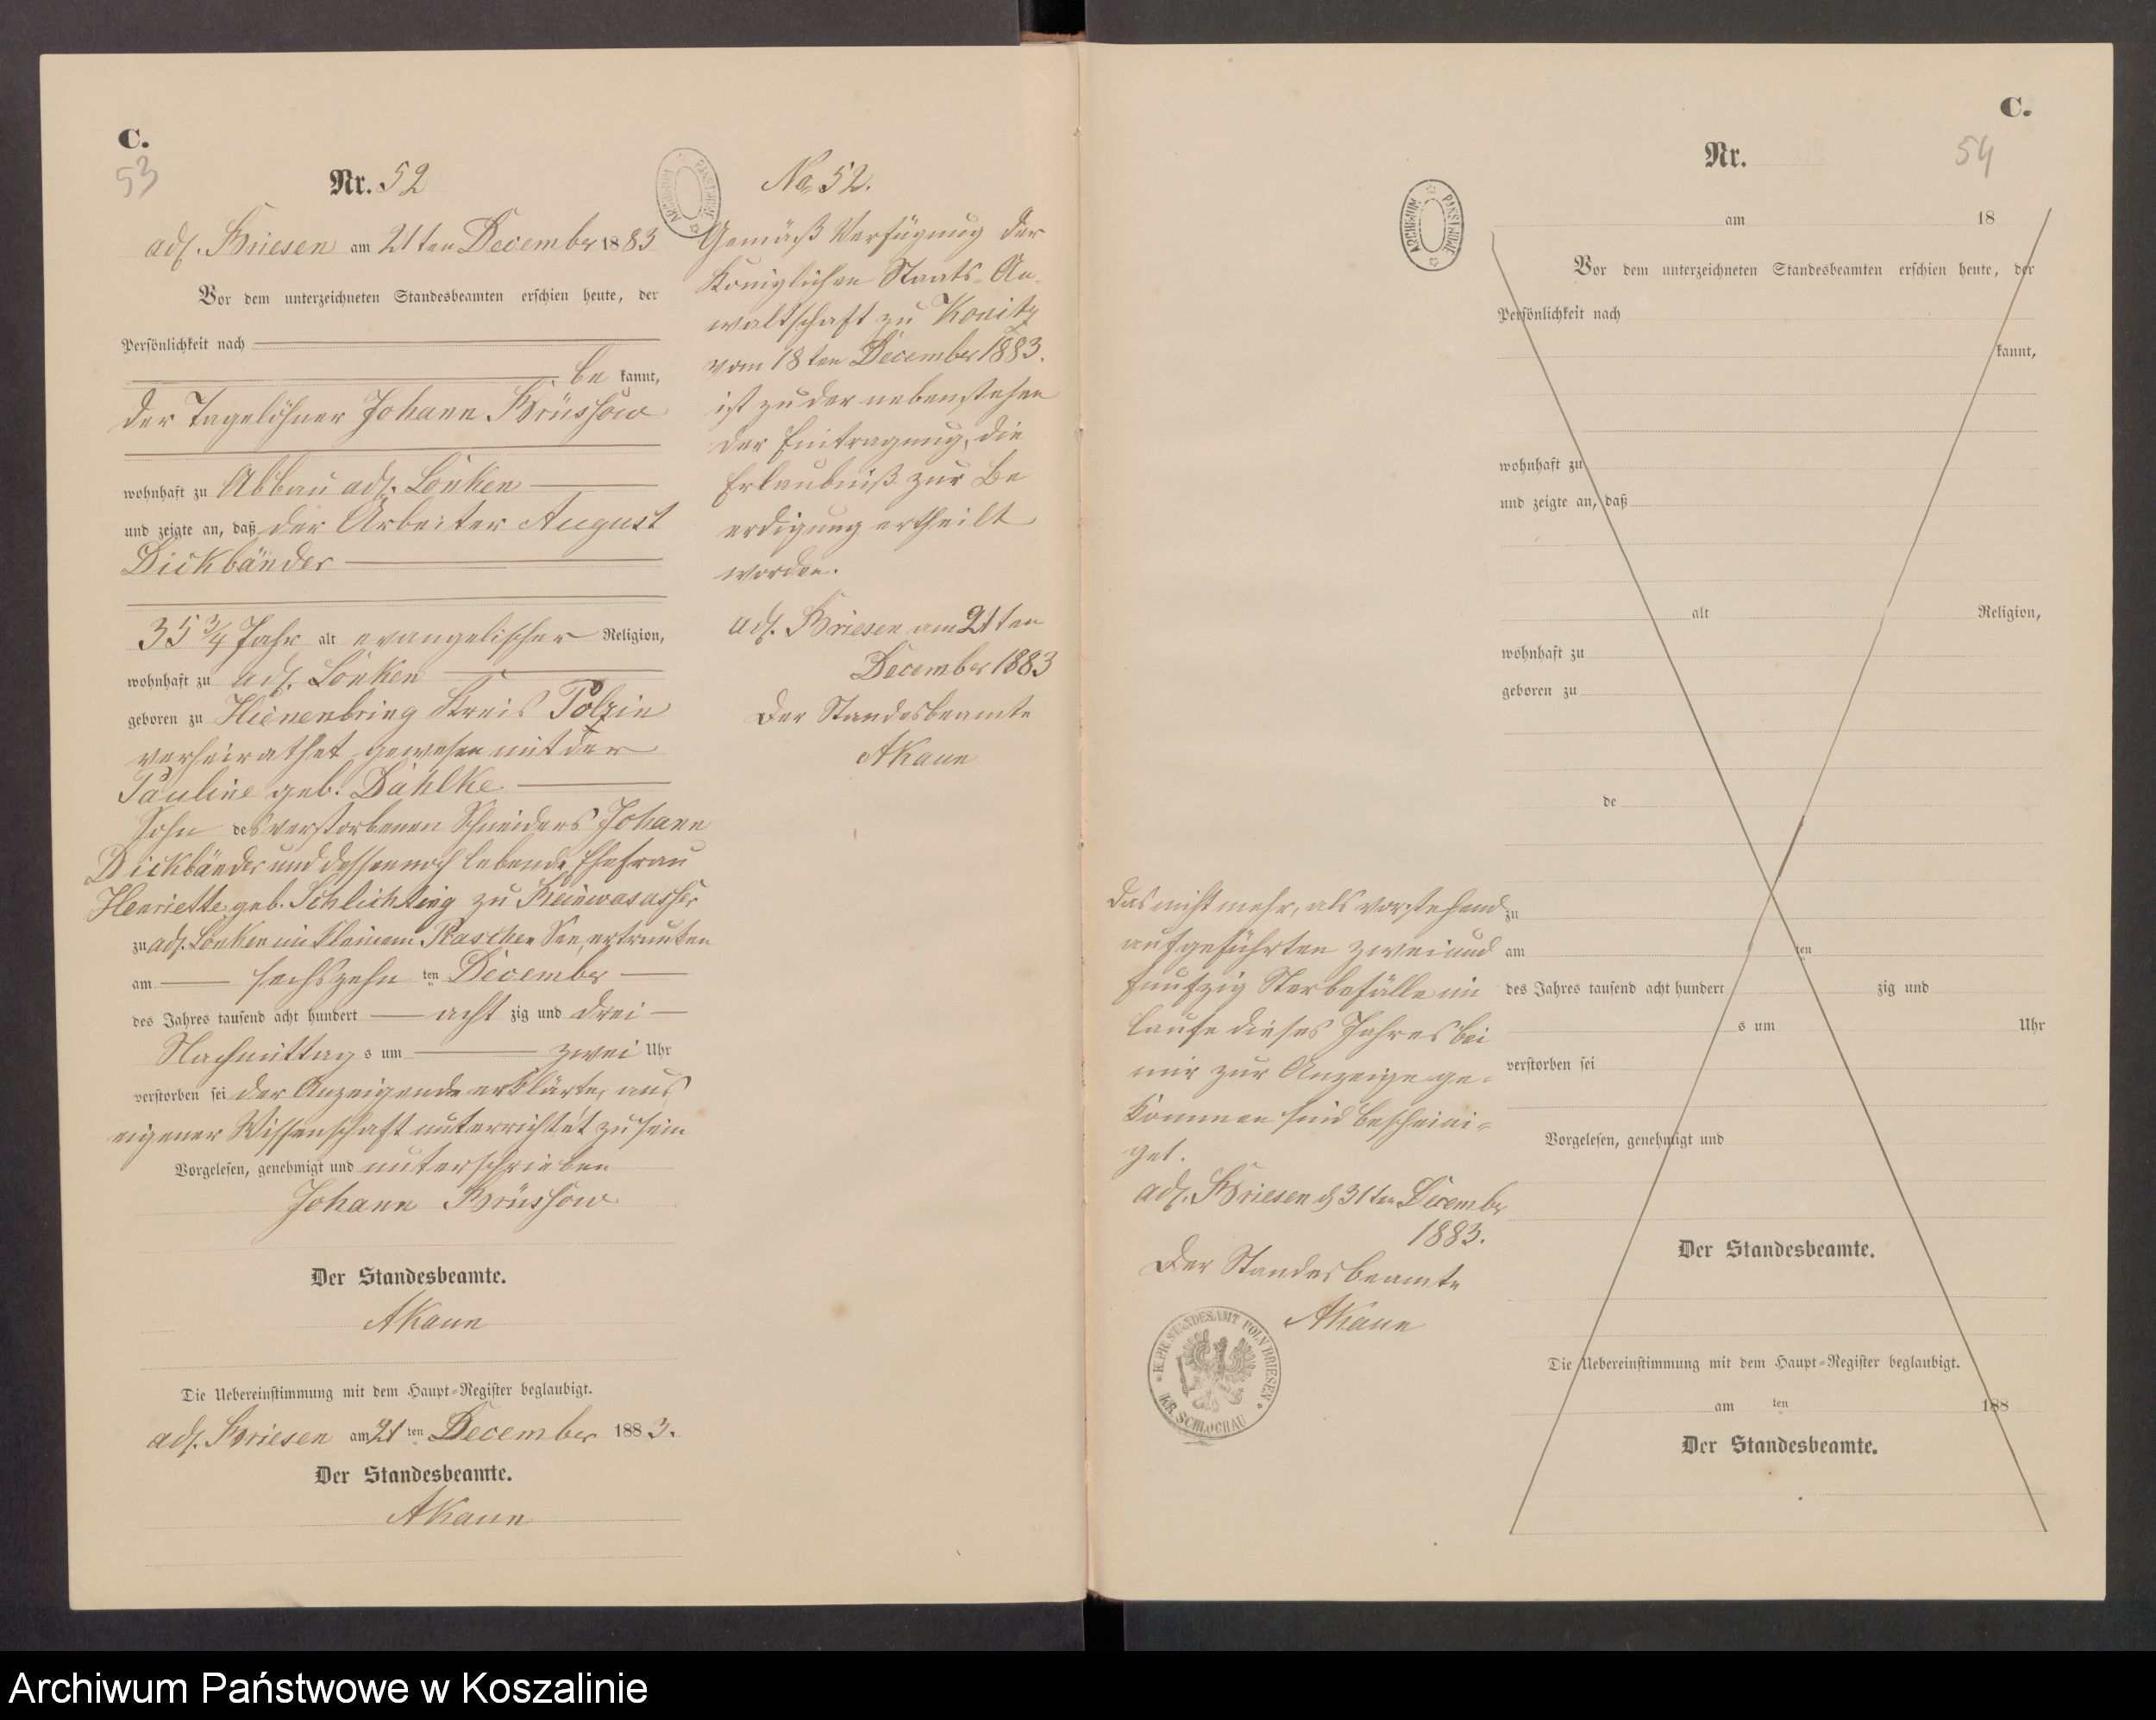 C.
53
Nr. 52
adl. Briesen am 21ten December 1883
Vor dem unterzeichneten Standesbeamten erschien heute, der
Persönlichkeit nach
be kannt,
der Tagelöhner Johann Brüssow
wohnhaft zu Abbau adl. Lonken
und zeigte an, daß der Arbeiter August
Dickbänder
35 3/4 Jahr alt evangelischer Religion,
wohnhaft zu adl. Lonken
geboren zu Kreis Polzin
verheirathet gewesen mit der
Pauline geb. Dahlke
Sohn des verstorbenen Schneiders Johann
Dickbänder und dessen noch lebende Ehefrau
Henriette geb. Schlichting zu
zu adl. Lonken im kleinem See, ertrunken
am sechszehn ten December
des Jahres tausend acht hundert acht zig und drei
Nachmittag s um zwei Uhr
verstorben sei der Anzeigende erklärte, aus
eigener Wissenschaft unterrichtet zu sein
Vorgelesen, genehmigt und unterschrieben
Johann Brüssow
Der Standesbeamte.
AKaun
Die Uebereinstimmung mit dem Haupt-Register beglaubigt.
adl. Briesen am 21 ten December 1883.
Der Standesbeamte.
AKaun
ARCHIWUM PAŃSTWOWE
No 52.
Gemäß Verfügung der
Königlichen Staats-An-
waltschaft zu Konitz
vom 18ten December 1883.
ist zu der nebenstehen
den Eintragung, die
Erlaubniß zur Be
erdigung ertheilt
worden.
adl. Briesen am 21ten
December 1883
Der Standesbeamte
AKaun
das nicht mehr, als vorstehend
aufgeführten zweiund
funfzig Sterbefälle im
Laufe dieses Jahres bei
mir zur Anzeige ge-
kommen sind bescheini-
get.
adl. Briesen d 31ten Decembr
1883.
Der Standesbeamte
AKaun
K. PR. STANDESAMT POLN. BRIESEN
KR. SCHLOCHAU
ARCHIWUM PAŃSTWOWE
C.
54
Nr.
am 18
Vor dem unterzeichneten Standesbeamten erschien heute, der
Persönlichkeit nach
kannt,
wohnhaft zu
und zeigte an, daß
alt Religion,
wohnhaft zu
geboren zu
de
zu
am ten
des Jahres tausend acht hundert zig und
s um Uhr
verstorben sei
Vorgelesen, genehmigt und
Der Standesbeamte.
Die Uebereinstimmung mit dem Haupt-Register beglaubigt.
am ten 188
Der Standesbeamte.
Archiwum Państwowe w Koszalinie